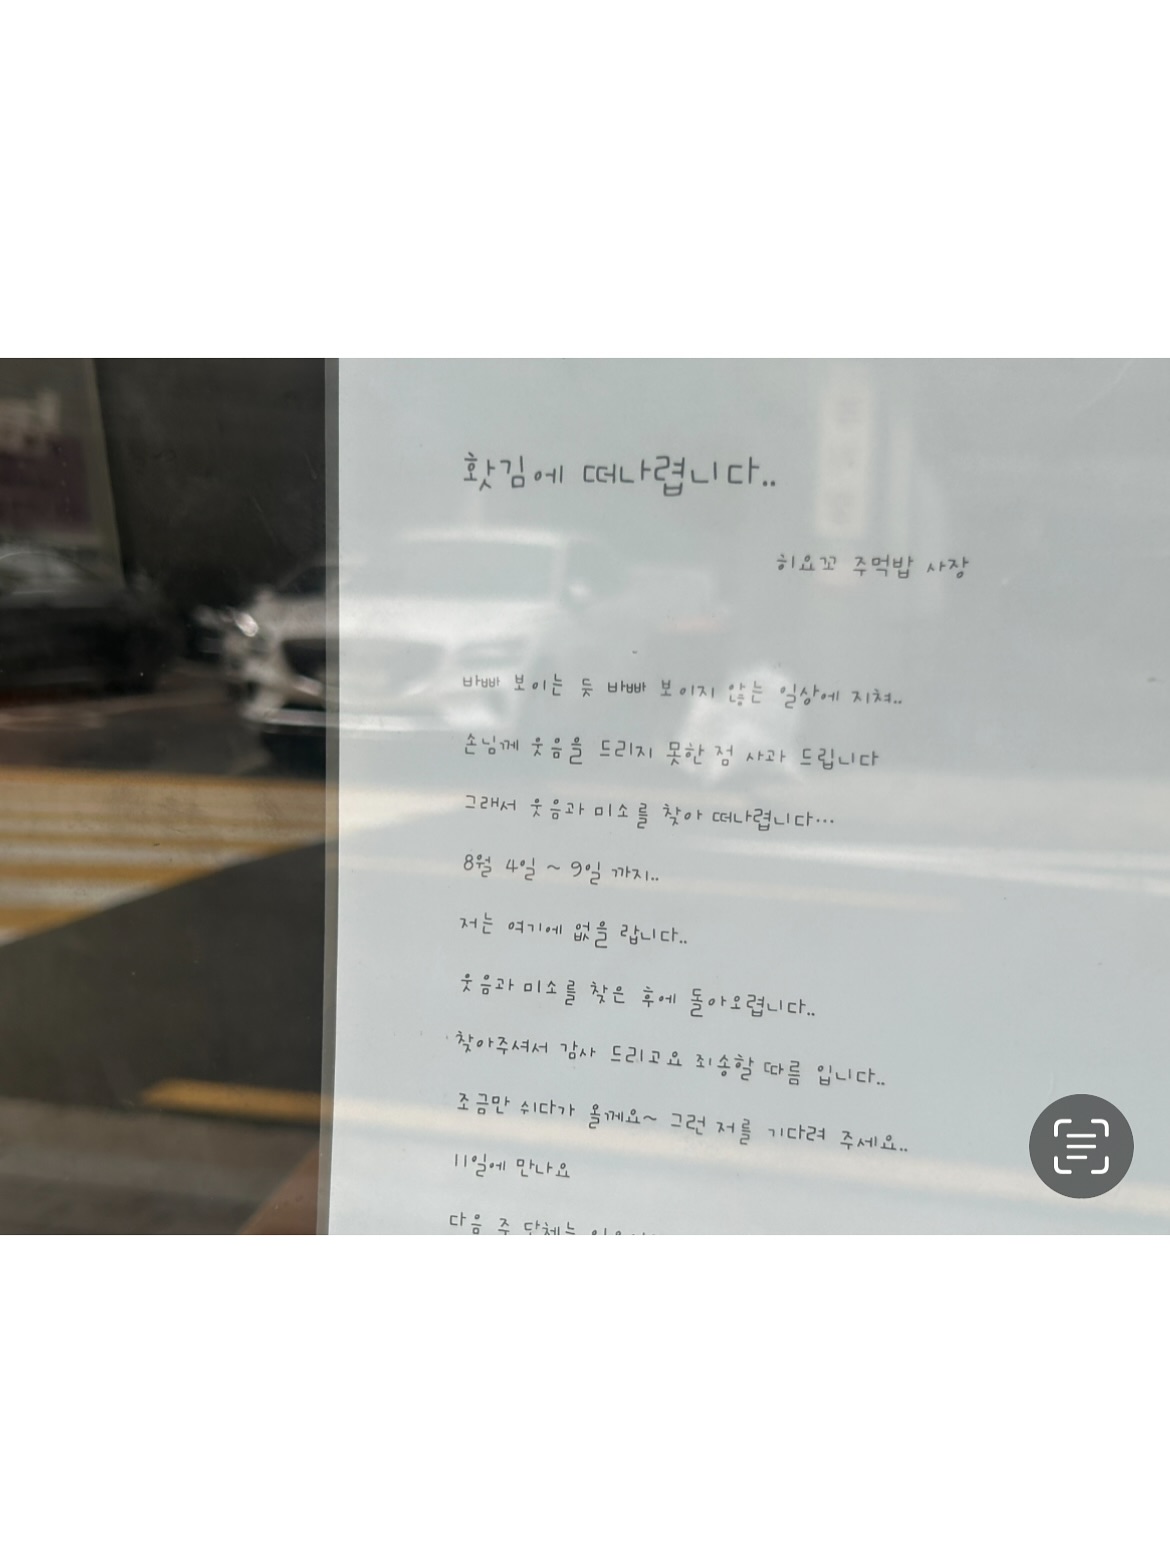 홧김에 떠나렵니다..
히요꼬 주먹밥 사장
바빠 보이는 듯 바빠 보이지 않는 일상에 지쳐..
손님께 웃음을 드리지 못한 점 사과 드립니다
그래서 웃음과 미소를 찾아 떠나렵니다...
8월 4일 ~ 9일 까지..
저는 여기에 없을 랍니다..
웃음과 미소를 찾은 후에 돌아오렵니다..
찾아주셔서 감사 드리고요 죄송할 따름 입니다..
조금만 쉬다가 올께요~ 그런 저를 기다려 주세요..
11일에 만나요
다음 주 단체는